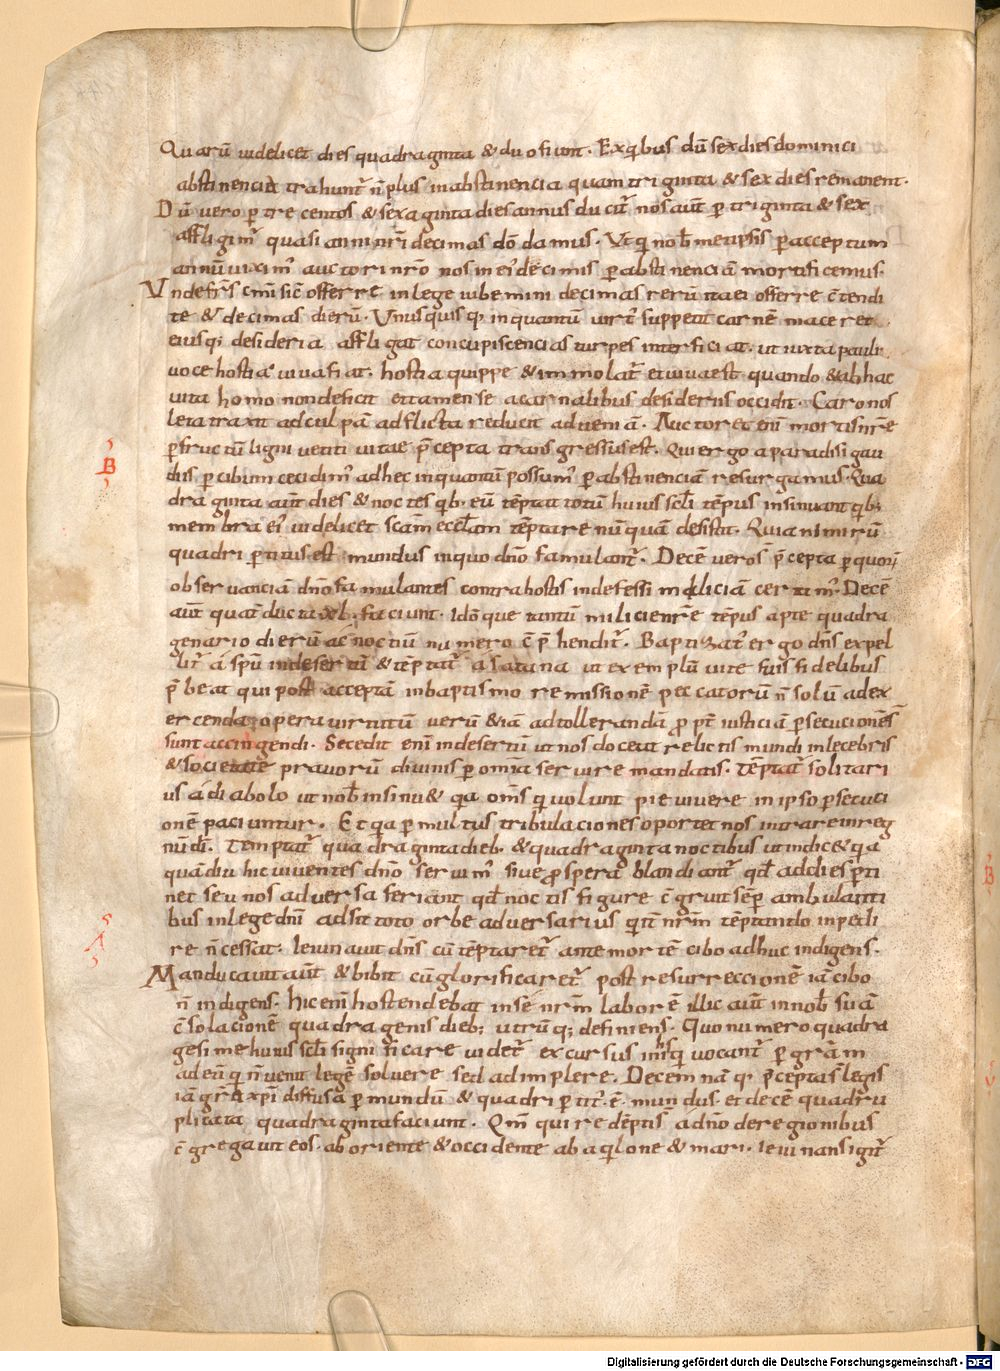 Quarū videlicet dies quadraginta & duo fiunt. Ex q̇bus dū sex dies dominici
abstinencię trahunt̄ n̄ plus in abstinencia quam triginta & sex dies remanent.
Dū vero ꝑ trecentos & sexaginta dies annus ducit̄ nos aut̄ ꝑ triginta & sex
affligim̄ quasi anni nr̄i decimas dō damus. Ut q nob̄ metipsis ꝑ acceptum
annū viximꝰ auctori nr̄o nos in eiꝰ decimis ꝑ abstinenciā mortificemus.
Unde fr̄s cm̄i sic̄ offerre in lege iubemini decimas rerū ita ei offerre c̄tendi
te & decimas dierū. Unusquisq; inquantū virtꝰ suppetit carnē maceret
eiusq; desideria affligat concupiscencias turpes interficiat. ut iuxta pauli
voce hostia viva fiat. hostia quippe & immolat̄ et viva est quando & ab hac
vita homo non deficit et tamen se a carnalibus desideriis occidit. Caro nos
leta traxit ad culpā adflicta reducit ad veniā. Auctor et enī mortis nr̄e
ꝑ fructū ligni vetiti vitae p̄cepta transgressus est. Qui ergo a paradisi gau
B
diis ꝑ cibum cecidimꝰ ad hec inquantū possumꝰ ꝑ abstinenciā resurgamus. Qua
draginta aut̄ dies & noctes q̇b. eū tēptat totū huius scl̄i tēpus insinuant q̇b;
membra eiꝰ videlicet scam eccl̄am tēptare nūquā desistit. Quia nimirū
quadripertitus est mundus in quo dn̄o famulant̄. Decē vero s̄ p̄cepta ꝑ quorꝰ
observanciā dn̄o famulantes contra hostis indefessi maliciā certimꝰ. Decē
aut̄ quat̄ ducta xl. faciunt. Idō que tantū milicie nr̄e tēpus apte quadra
genario dierū ac noctiū numero c̄p̄hendit̄. Baptizat̄ ergo dn̄s expel
lit̄ á spū in desertū & tēptat̄ a satana ut exemplū vite suis fidelibus
p̄beat qui post acceptā in baptismo remissionē peccatorū n̄ solū ad ex
ercenda opera virtutū verū & iā ad tollerandā ꝓpt̄ iusticiā ꝑsecucionēs
sunt accingendi. Secedit enī in desertū ut nos doceat relictis mundi inlecebris
& societate pravorū divinis ꝑ omīa servire mandatis. Tēptat̄ solitari
us á diabolo ut nob̄ insinu& qa om̄s q volunt pie vivere in ipso ꝑsecuti
onē paciuntur. Et qa ꝑ multus tribulaciones oportet nos intrare in reg
nū dī. Temptat̄ quadraginta dieb. & quadraginta noctibus ut indic& q a
quādiu hic viventes dn̄o servimꝰ sive ꝓspera blandiant̄ qd̄ ad dies ꝑti
net seu nos adversa feriant qd̄ noctis figure c̄gruit sēp̄ ambulanti
5 A
bus in lege dn̄i adsit toto orbe adversarius qit̄ nr̄m tēptando inpedi
re n̄ cessat. Ieiunavit dn̄s cū tēptaret̄ ante mortē cibo adhuc indigens.
Manducavit aut̄ & bibit cū glorificaret̄ post resurreccionē iā cibo
n̄ indigens. hic enī hostendebat in se nr̄m laborē illic aut̄ in nob̄ suā
c̄solacionē quadragenis dieb; utrūq; definiens. Quo numero quadra
gesime huius scl̄i significare videt̄ excursus in his q vocant̄ ꝑ grām
ad eū q n̄ venit legē solvere sed adimplere. Decem nāq; p̄cepta s̄ legis
iā grā xp̄i diffusa ꝑ mundū & quadriꝑtitꝰ. ē. mundus. et decē quadru
plitata quadraginta faciunt. Qm̄ qui redēpti s̄ á dn̄o de regionibus
c̄gregavit eos. ab oriente & occidente ab aq̇lone & mari. Ieiunans igit̄